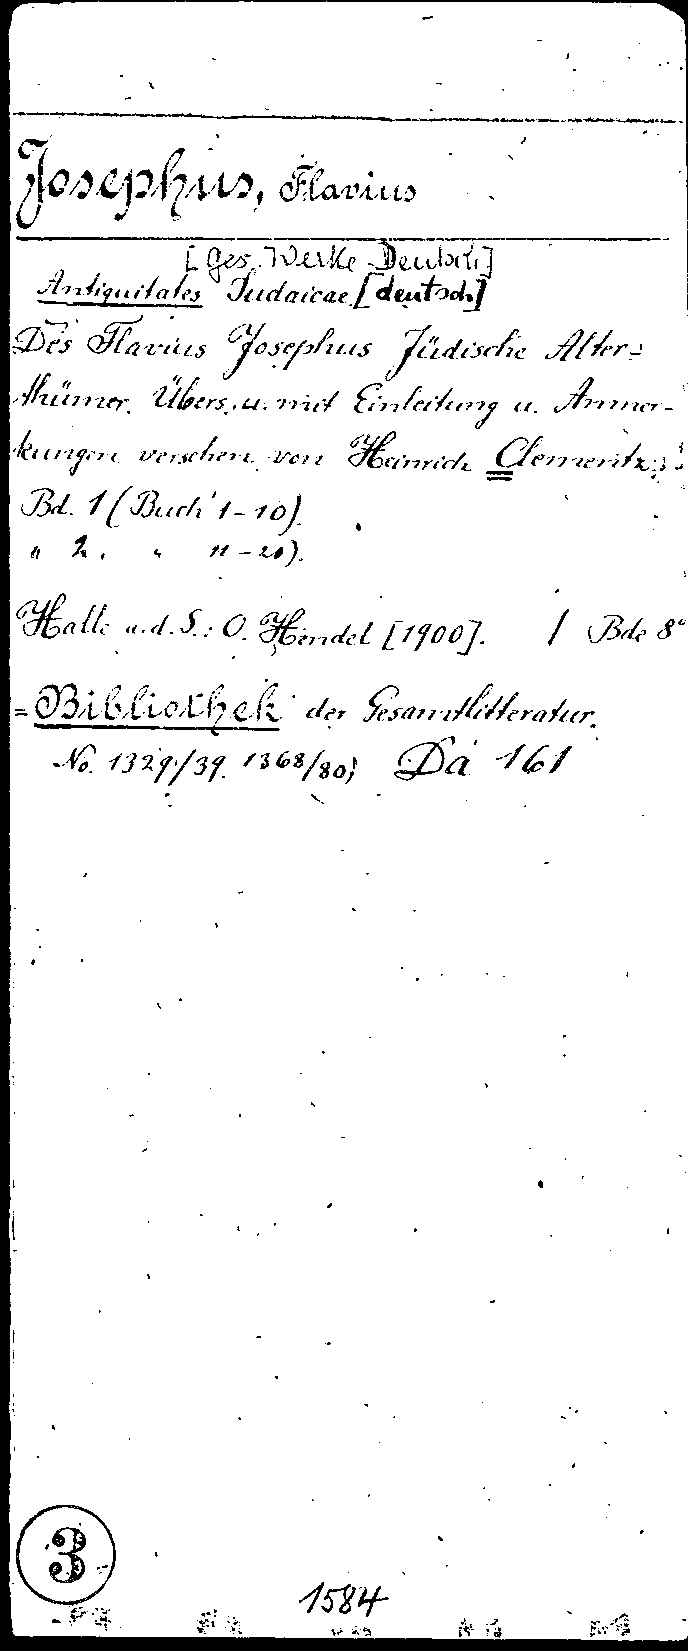 Josephus, Flavius
[Ges. Werke Deutsch]
Antiquitates Judaicae [deutsch]
Des Flavius Josephus Jüdische Alter-
thümer. Übers. u. mit Einleitung u. Anmer-
kungen versehen von Heinrich Clementz.
Bd. 1 (Buch 1-10).
" 2. " 11-20).
Halle a.d.S.: O. Hendel [1900]. / Bde 8°
= Bibliothek der Gesamtlitteratur.
No. 1329/39. 1368/80; Da 161
3
1584